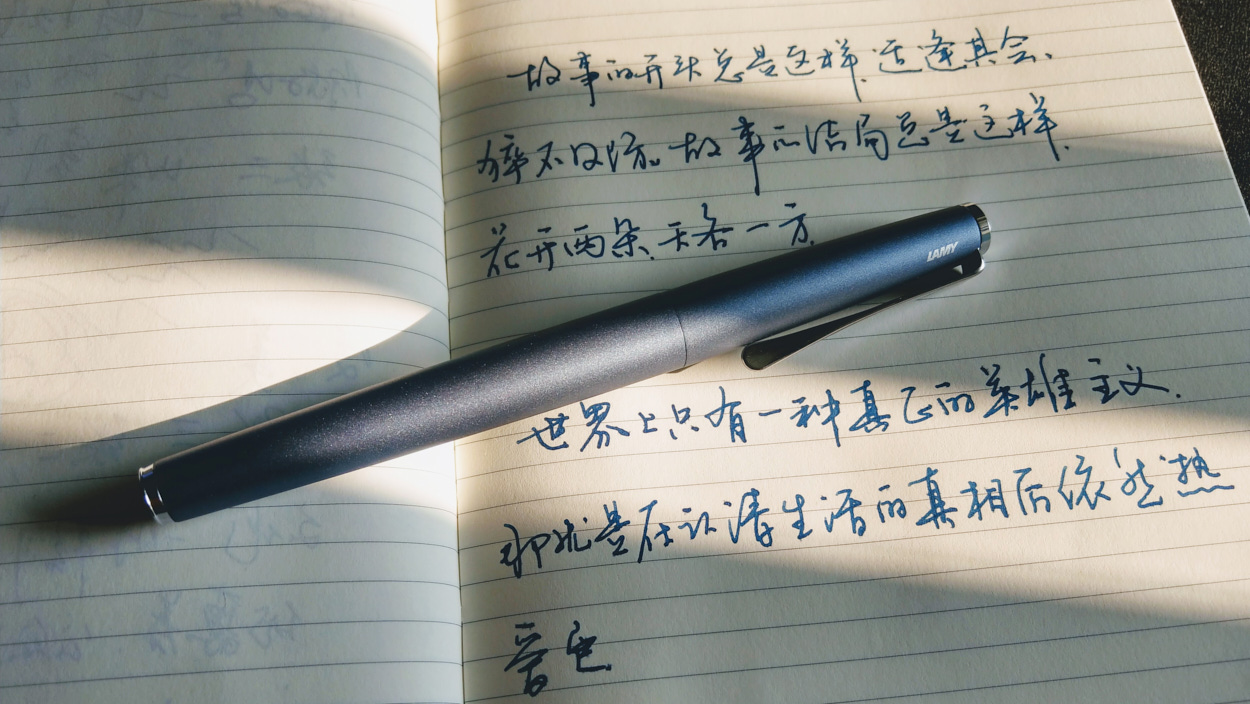 故事的开头总是这样,适逢其会、
猝不及防。故事的结局总是这样,
花开两朵,天各一方.
LAMY
世界上只有一种真正的英雄主义.
那就是在认清生活的真相后依然热
爱它.